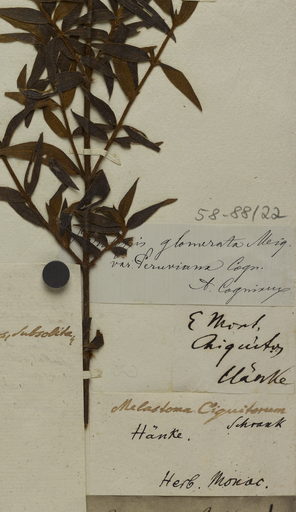 58-88/22
glomerata Meiq.
var. Peruviana Cogn.
A. Cogniaux
subsolita,
E Mont.
Chiquitos
Hänke
Melastoma Ciquitorum
Schrank
Hänke.
Herb. Monac.